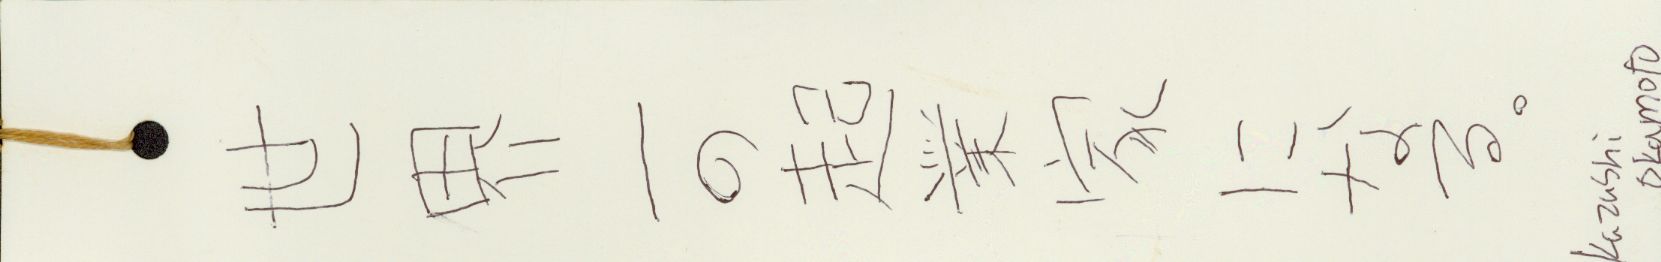 世界一の起業家になる。
Kazushi
Okamoto